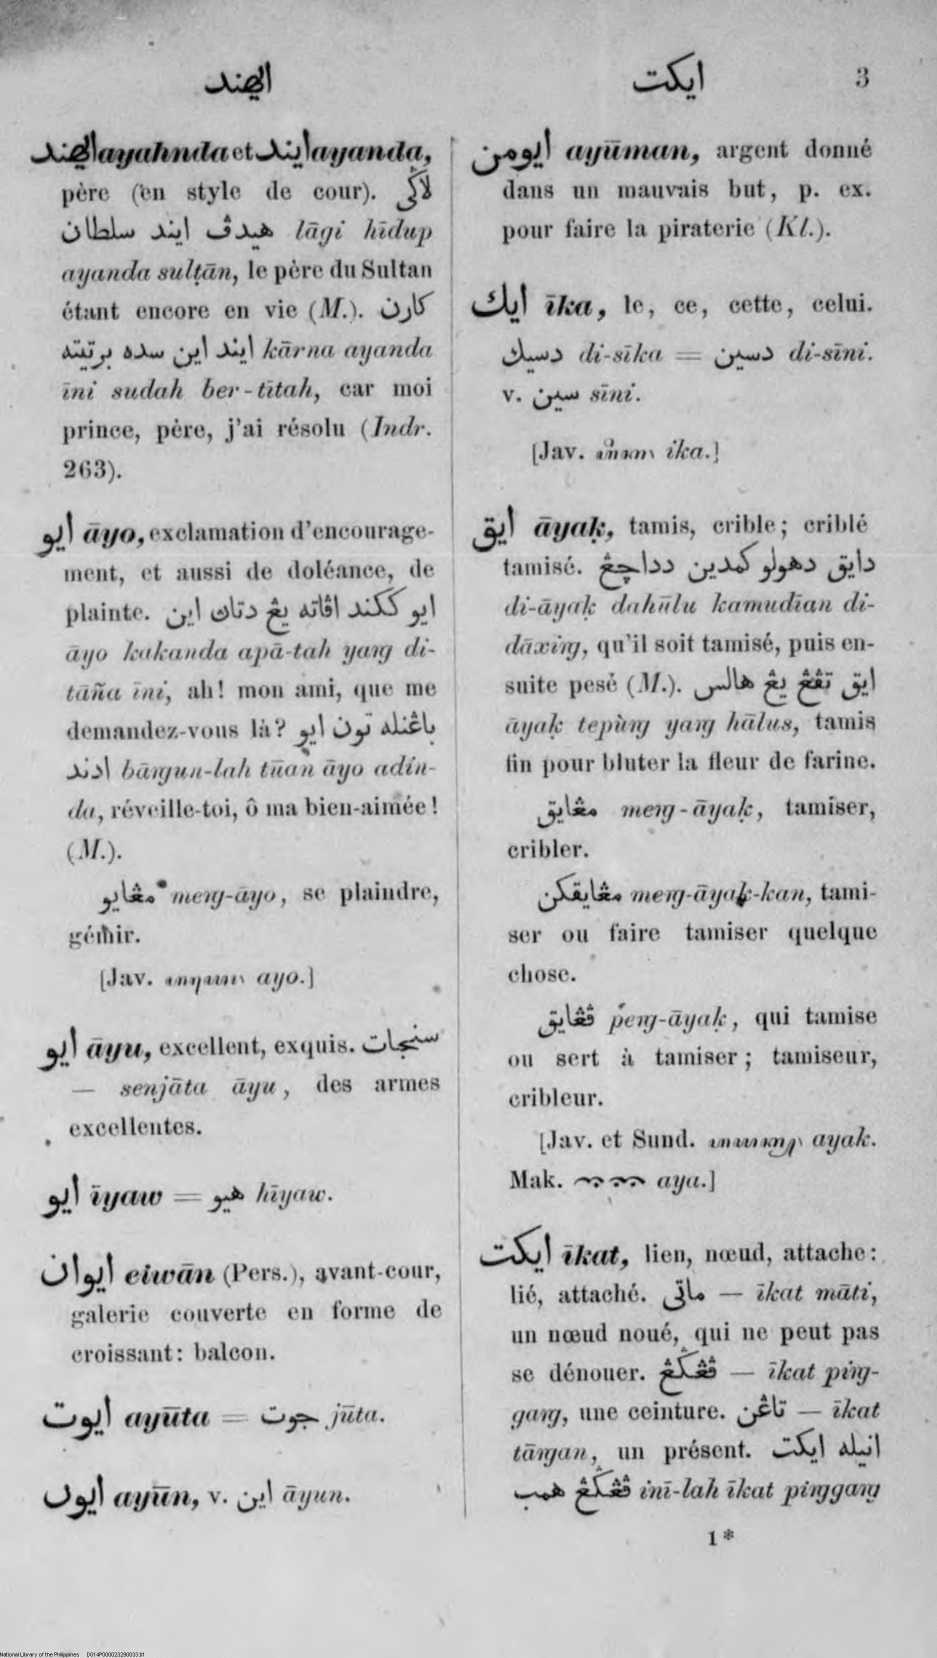 ايهند
ايكت 3
ايهند ayahnda et ايند ayanda,
père (en style de cour). لاڬي
هيدڤ ايند سلطان lāgi hīdup
ayanda sulṭān, le père du Sultan
étant encore en vie (M.). كارن
ايند اين سده برتيته kārna ayanda
īni sudah ber-tītah, car moi
prince, père, j'ai résolu (Indr.
263).
ايو āyo, exclamation d'encourage-
ment, et aussi de doléance, de
plainte. ايو ككند اڤاته يڠ دتاڽ اين
āyo kakanda apā-tah yang di-
tāña īni, ah! mon ami, que me
demandez-vous là? باڠنله تون ايو
ادند bāngun-lah tūan āyo adin-
da, réveille-toi, ô ma bien-aimée!
(M.).
مڠايو meng-āyo, se plaindre,
gémir.
[Jav. ayo.]
ايو āyu, excellent, exquis. سنجات
— senjāta āyu, des armes
excellentes.
ايو īyaw = هيو hīyaw.
ايوان eiwān (Pers.), avant-cour,
galerie couverte en forme de
croissant: balcon.
ايوت ayūta = جوت jūta.
ايون ayūn, v. اين āyun.
ايومن ayūman, argent donné
dans un mauvais but, p. ex.
pour faire la piraterie (Kl.).
ايك īka, le, ce, cette, celui.
دسيك di-sīka = دسين di-sīni.
v. سين sīni.
[Jav. ika.]
ايق āyaḳ, tamis, crible; criblé
tamisé. دايق دهولو كمدين دداچڠ
di-āyaḳ dahūlu kamudīan di-
dāxing, qu'il soit tamisé, puis en-
suite pesé (M.). ايق تڤڠ يڠ هالس
āyaḳ tepùng yang hālus, tamis
fin pour bluter la fleur de farine.
مڠايق meng-āyaḳ, tamiser,
cribler.
مڠايقكن meng-āyaḳ-kan, tami-
ser ou faire tamiser quelque
chose.
ڤڠايق peng-āyaḳ, qui tamise
ou sert à tamiser; tamiseur,
cribleur.
[Jav. et Sund. ayak.
Mak. aya.]
ايكت īkat, lien, nœud, attache:
lié, attaché. ماتي — īkat māti,
un nœud noué, qui ne peut pas
se dénouer. ڤڠكڠ — īkat ping-
gang, une ceinture. تاڠن — īkat
tāngan, un présent. انيله ايكت
ڤڠكڠ همب inī-lah īkat pinggang
1*
National Library of the Philippines